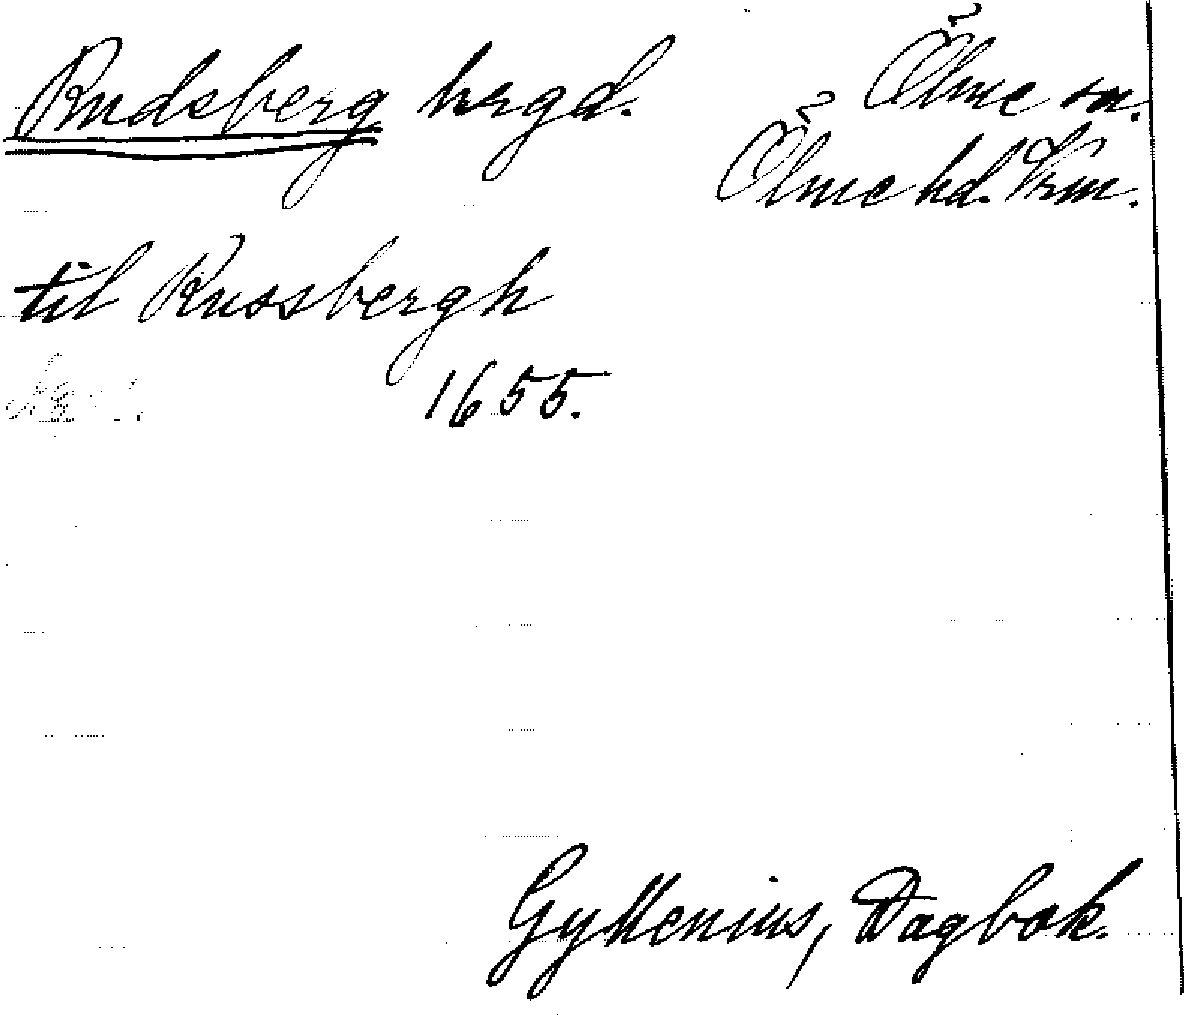 Rudsberg hrgd. Ölme sn.
Ölme hd. Vrm.
til Russbergh
1655.
Gyllenius, Dagbok.